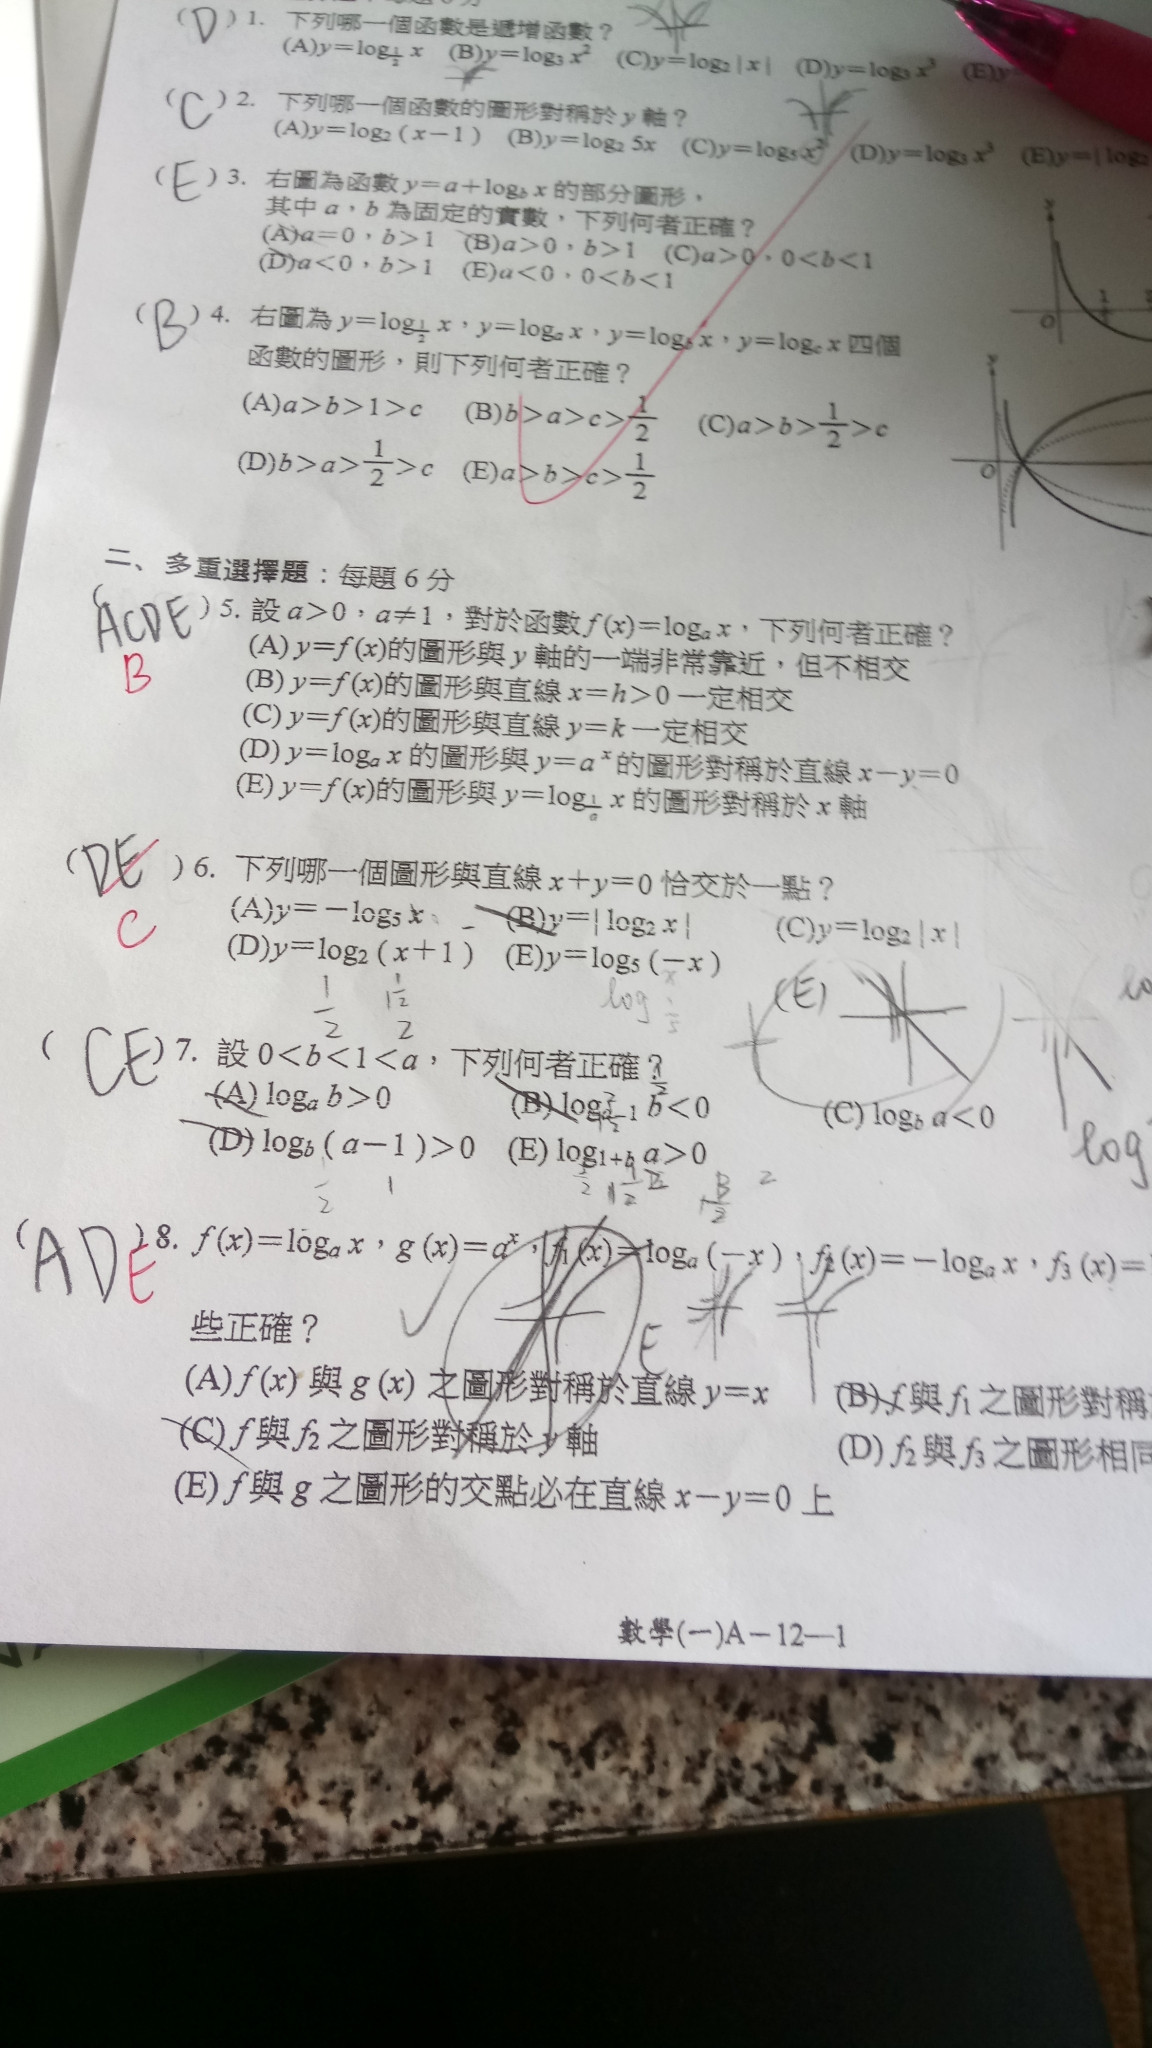 (D) 1. 下列哪一個函數是遞增函數？
(A)y=log½ x (B)y=log₃ x² (C)y=log₂|x| (D)y=log₃ x³ (E)y
(C) 2. 下列哪一個函數的圖形對稱於 y 軸？
(A)y=log₂(x−1) (B)y=log₂ 5x (C)y=log₅ x² (D)y=log₃ x³ (E)y=|log₂
(E) 3. 右圖為函數 y=a+log_b x 的部分圖形，
其中 a，b 為固定的實數，下列何者正確？
(A)a=0，b>1 (B)a>0，b>1 (C)a>0，0<b<1
(D)a<0，b>1 (E)a<0，0<b<1
y
1
O
(B) 4. 右圖為 y=log½ x，y=log_a x，y=log_b x，y=log_c x 四個
函數的圖形，則下列何者正確？
(A)a>b>1>c (B)b>a>c>1/2 (C)a>b>1/2>c
(D)b>a>1/2>c (E)a>b>c>1/2
y
O
二、多重選擇題：每題 6 分
(ACDE) 5. 設 a>0，a≠1，對於函數 f(x)=log_a x，下列何者正確？
B
(A) y=f(x)的圖形與 y 軸的一端非常靠近，但不相交
(B) y=f(x)的圖形與直線 x=h>0 一定相交
(C) y=f(x)的圖形與直線 y=k 一定相交
(D) y=log_a x 的圖形與 y=aˣ 的圖形對稱於直線 x−y=0
(E) y=f(x)的圖形與 y=log_{1/a} x 的圖形對稱於 x 軸
(DE) 6. 下列哪一個圖形與直線 x+y=0 恰交於一點？
C
(A)y=−log₅ x (B)y=|log₂ x| (C)y=log₂|x|
(D)y=log₂(x+1) (E)y=log₅(−x)
1/2
log
(E)
(CE) 7. 設 0<b<1<a，下列何者正確？
(A) log_a b>0 (B) log_{a−1} b<0 (C) log_b a<0
(D) log_b(a−1)>0 (E) log_{1+b} a>0
log
(ADE) 8. f(x)=log_a x，g(x)=aˣ，f₁(x)=log_a(−x)，f₂(x)=−log_a x，f₃(x)=
些正確？
E
(A) f(x) 與 g(x) 之圖形對稱於直線 y=x (B) f 與 f₁ 之圖形對稱
(C) f 與 f₂ 之圖形對稱於 y 軸 (D) f₂ 與 f₃ 之圖形相同
(E) f 與 g 之圖形的交點必在直線 x−y=0 上
數學(一)A－12—1